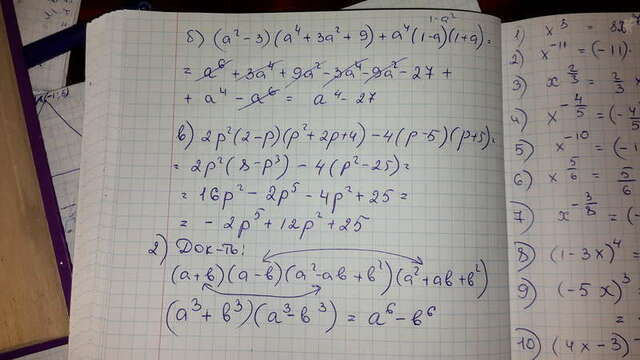 1-a²
б) (a²-3)(a⁴+3a²+9)+a⁴(1-a)(1+a)=
= a⁶ + 3a⁴ + 9a² - 3a⁴ - 9a² - 27 +
+ a⁴ - a⁶ = a⁴ - 27
в) 2p²(2-p)(p²+2p+4) - 4(p-5)(p+5)=
= 2p²(8-p³) - 4(p²-25)=
= 16p² - 2p⁵ - 4p² + 25 =
= - 2p⁵ + 12p² + 25
2) Док-ть:
(a+b)(a-b)(a²-ab+b²)(a²+ab+b²)
(a³+b³)(a³-b³) = a⁶-b⁶
1) x³ =
2) x⁻¹¹ = (-11)
3) x^(2/3) = 2/3
4) x^(-4/5) = (-4/5
5) x⁻¹⁰ = (-1
6) x^(5/6) = 5/6
7) x^(-3/8) = (-
8) (1-3x)⁴ =
9) (-5x)³ =
=
10) (4x-3)